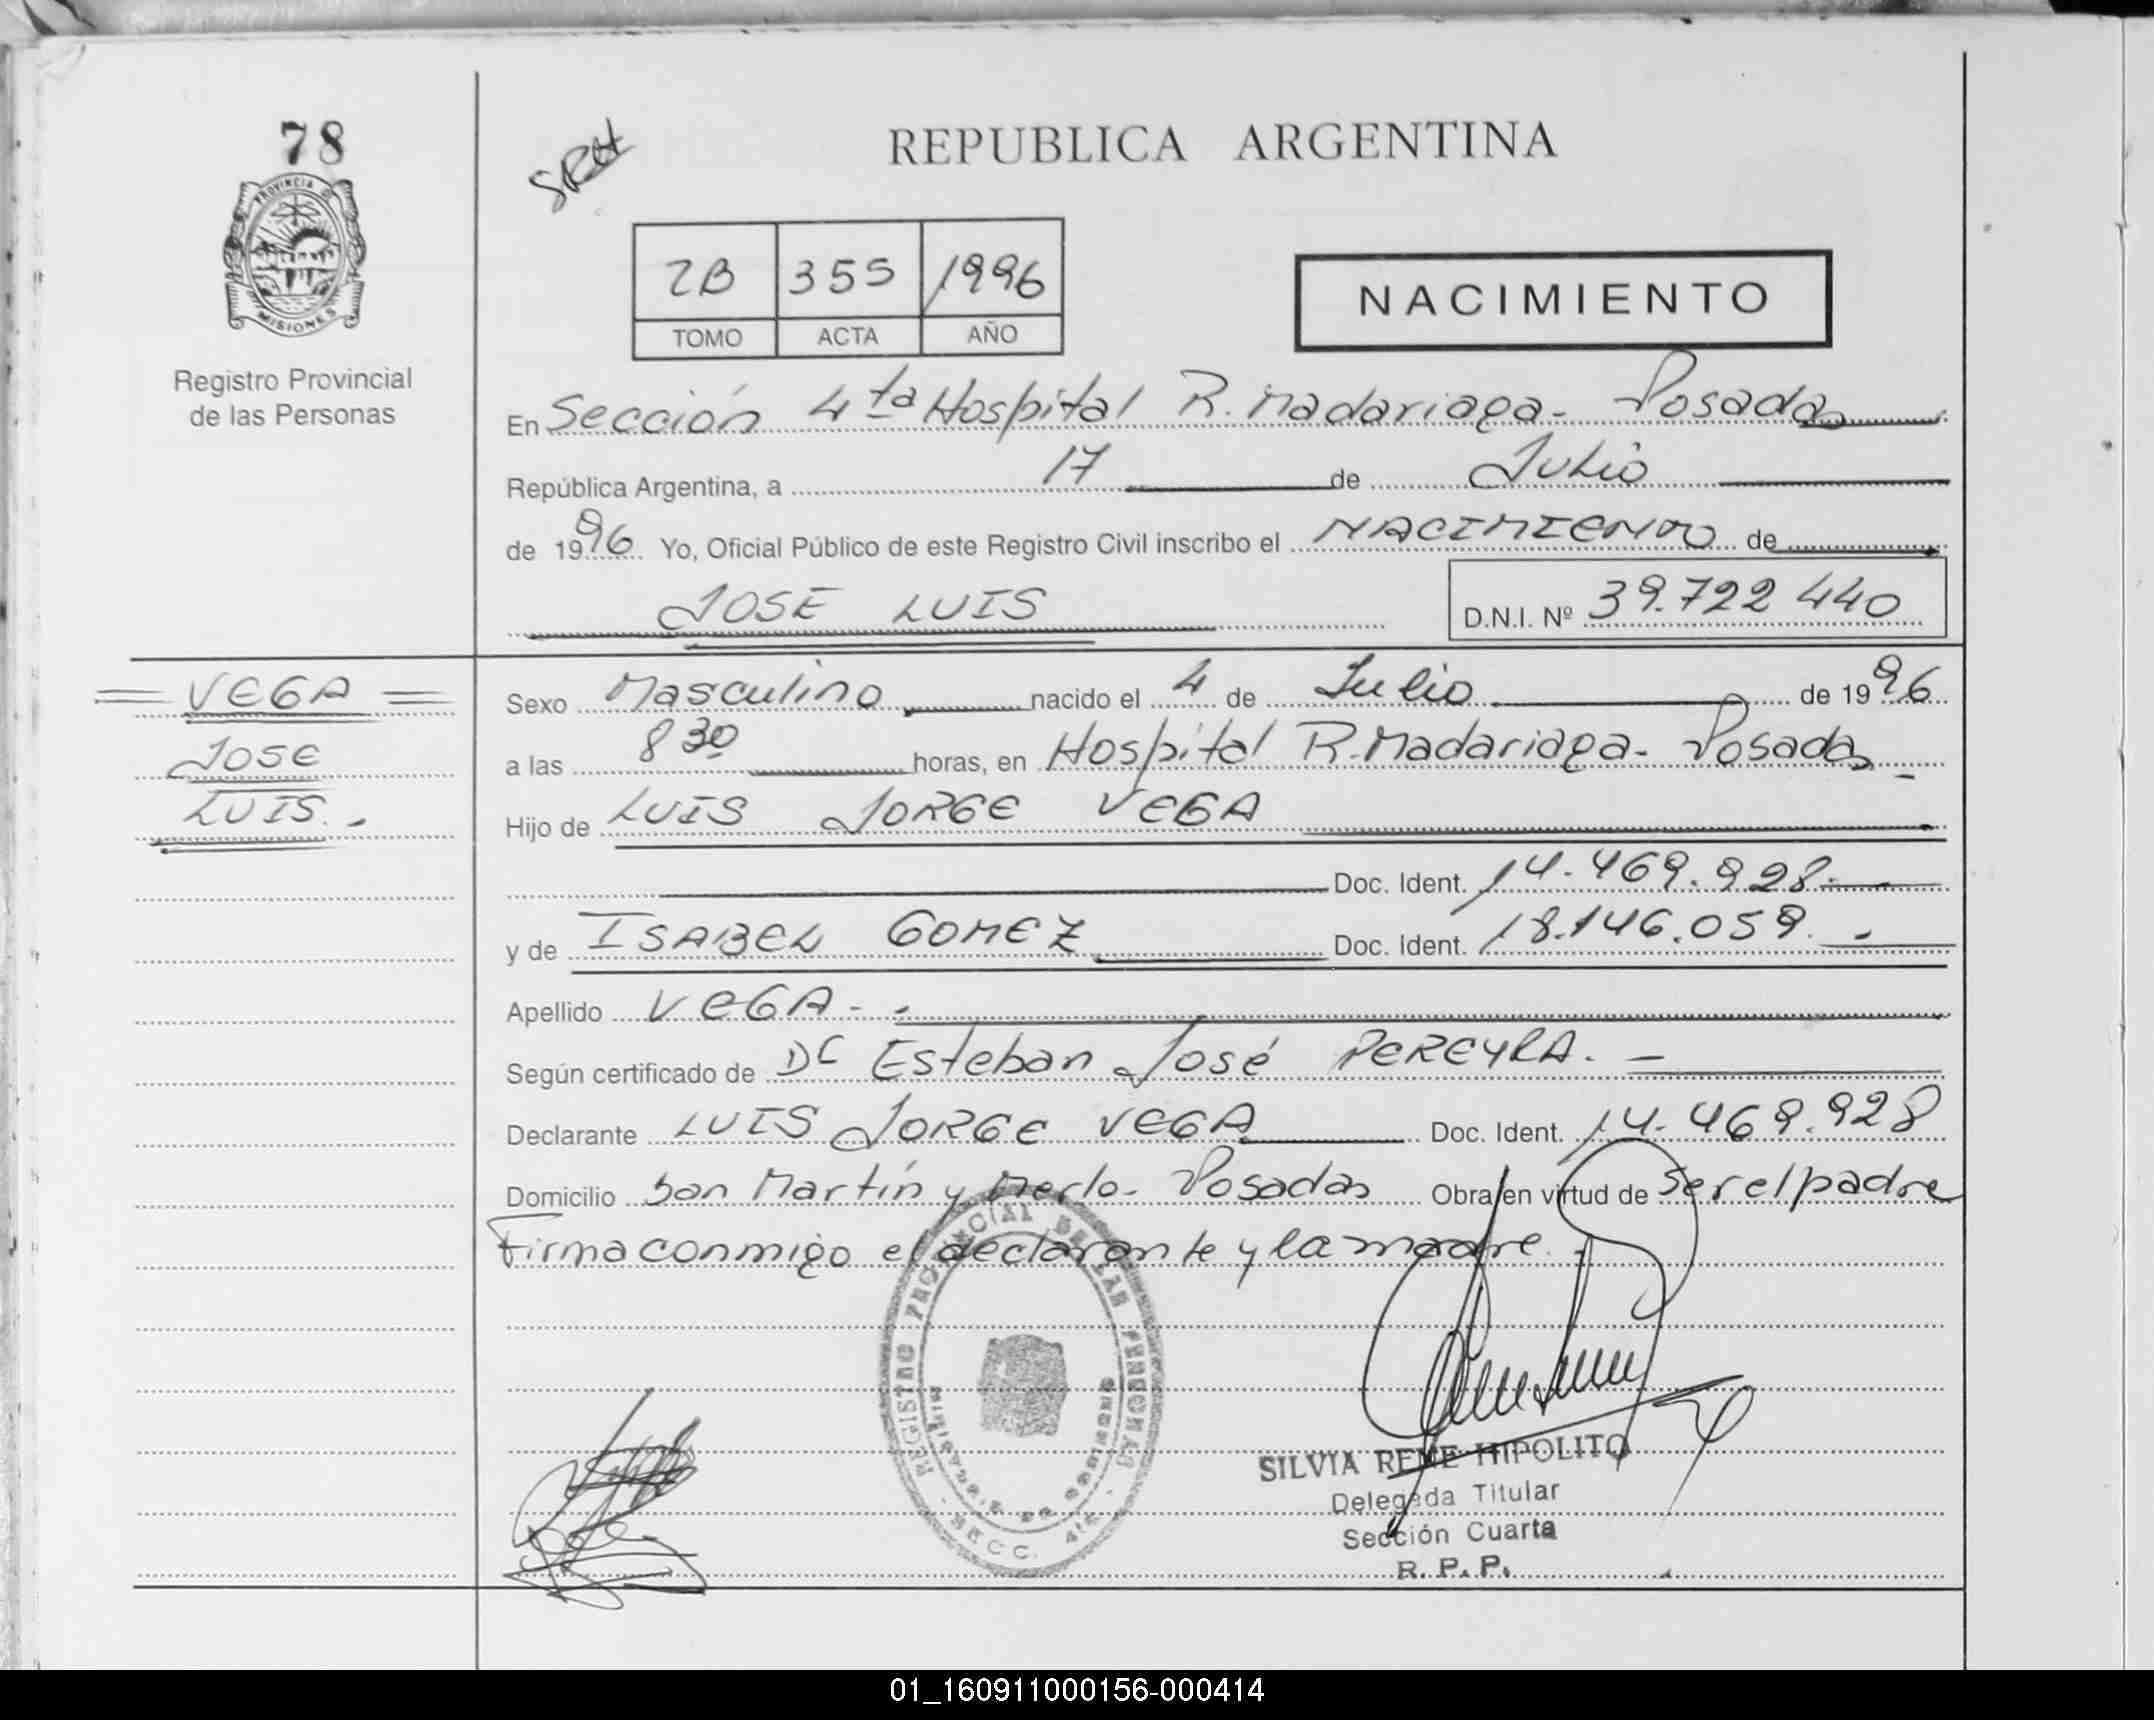 78
SRH
REPUBLICA ARGENTINA
PROVINCIA D
MISIONES
2B 355 1996
TOMO ACTA AÑO
NACIMIENTO
Registro Provincial
de las Personas
En Sección 4ta Hospital R. Madariaga - Posadas
República Argentina, a 17 de Julio
de 1996 Yo, Oficial Público de este Registro Civil inscribo el NACIMIENTO de
JOSE LUIS D.N.I. Nº 39.722 440
VEGA
JOSE
LUIS.-
Sexo Masculino nacido el 4 de Julio de 1996
a las 8 30 horas, en Hospital R. Madariaga - Posadas -
Hijo de LUIS JORGE VEGA
Doc. Ident. 14.469.928.-
y de ISABEL GOMEZ Doc. Ident. 18.146.059.-
Apellido VEGA - .
Según certificado de Dr Esteban José PEREYRA. -
Declarante LUIS JORGE VEGA Doc. Ident. 14.469.928
Domicilio San Martín y Merlo - Posadas Obra en virtud de Ser el padre
Firma conmigo el declarante y la madre. -
REGISTRO PROVINCIAL DE LAS PERSONAS
MINISTERIO DE GOBIERNO
SECC. 4ta
SILVIA RENE HIPOLITO
Delegada Titular
Sección Cuarta
R. P. P.
01_160911000156-000414